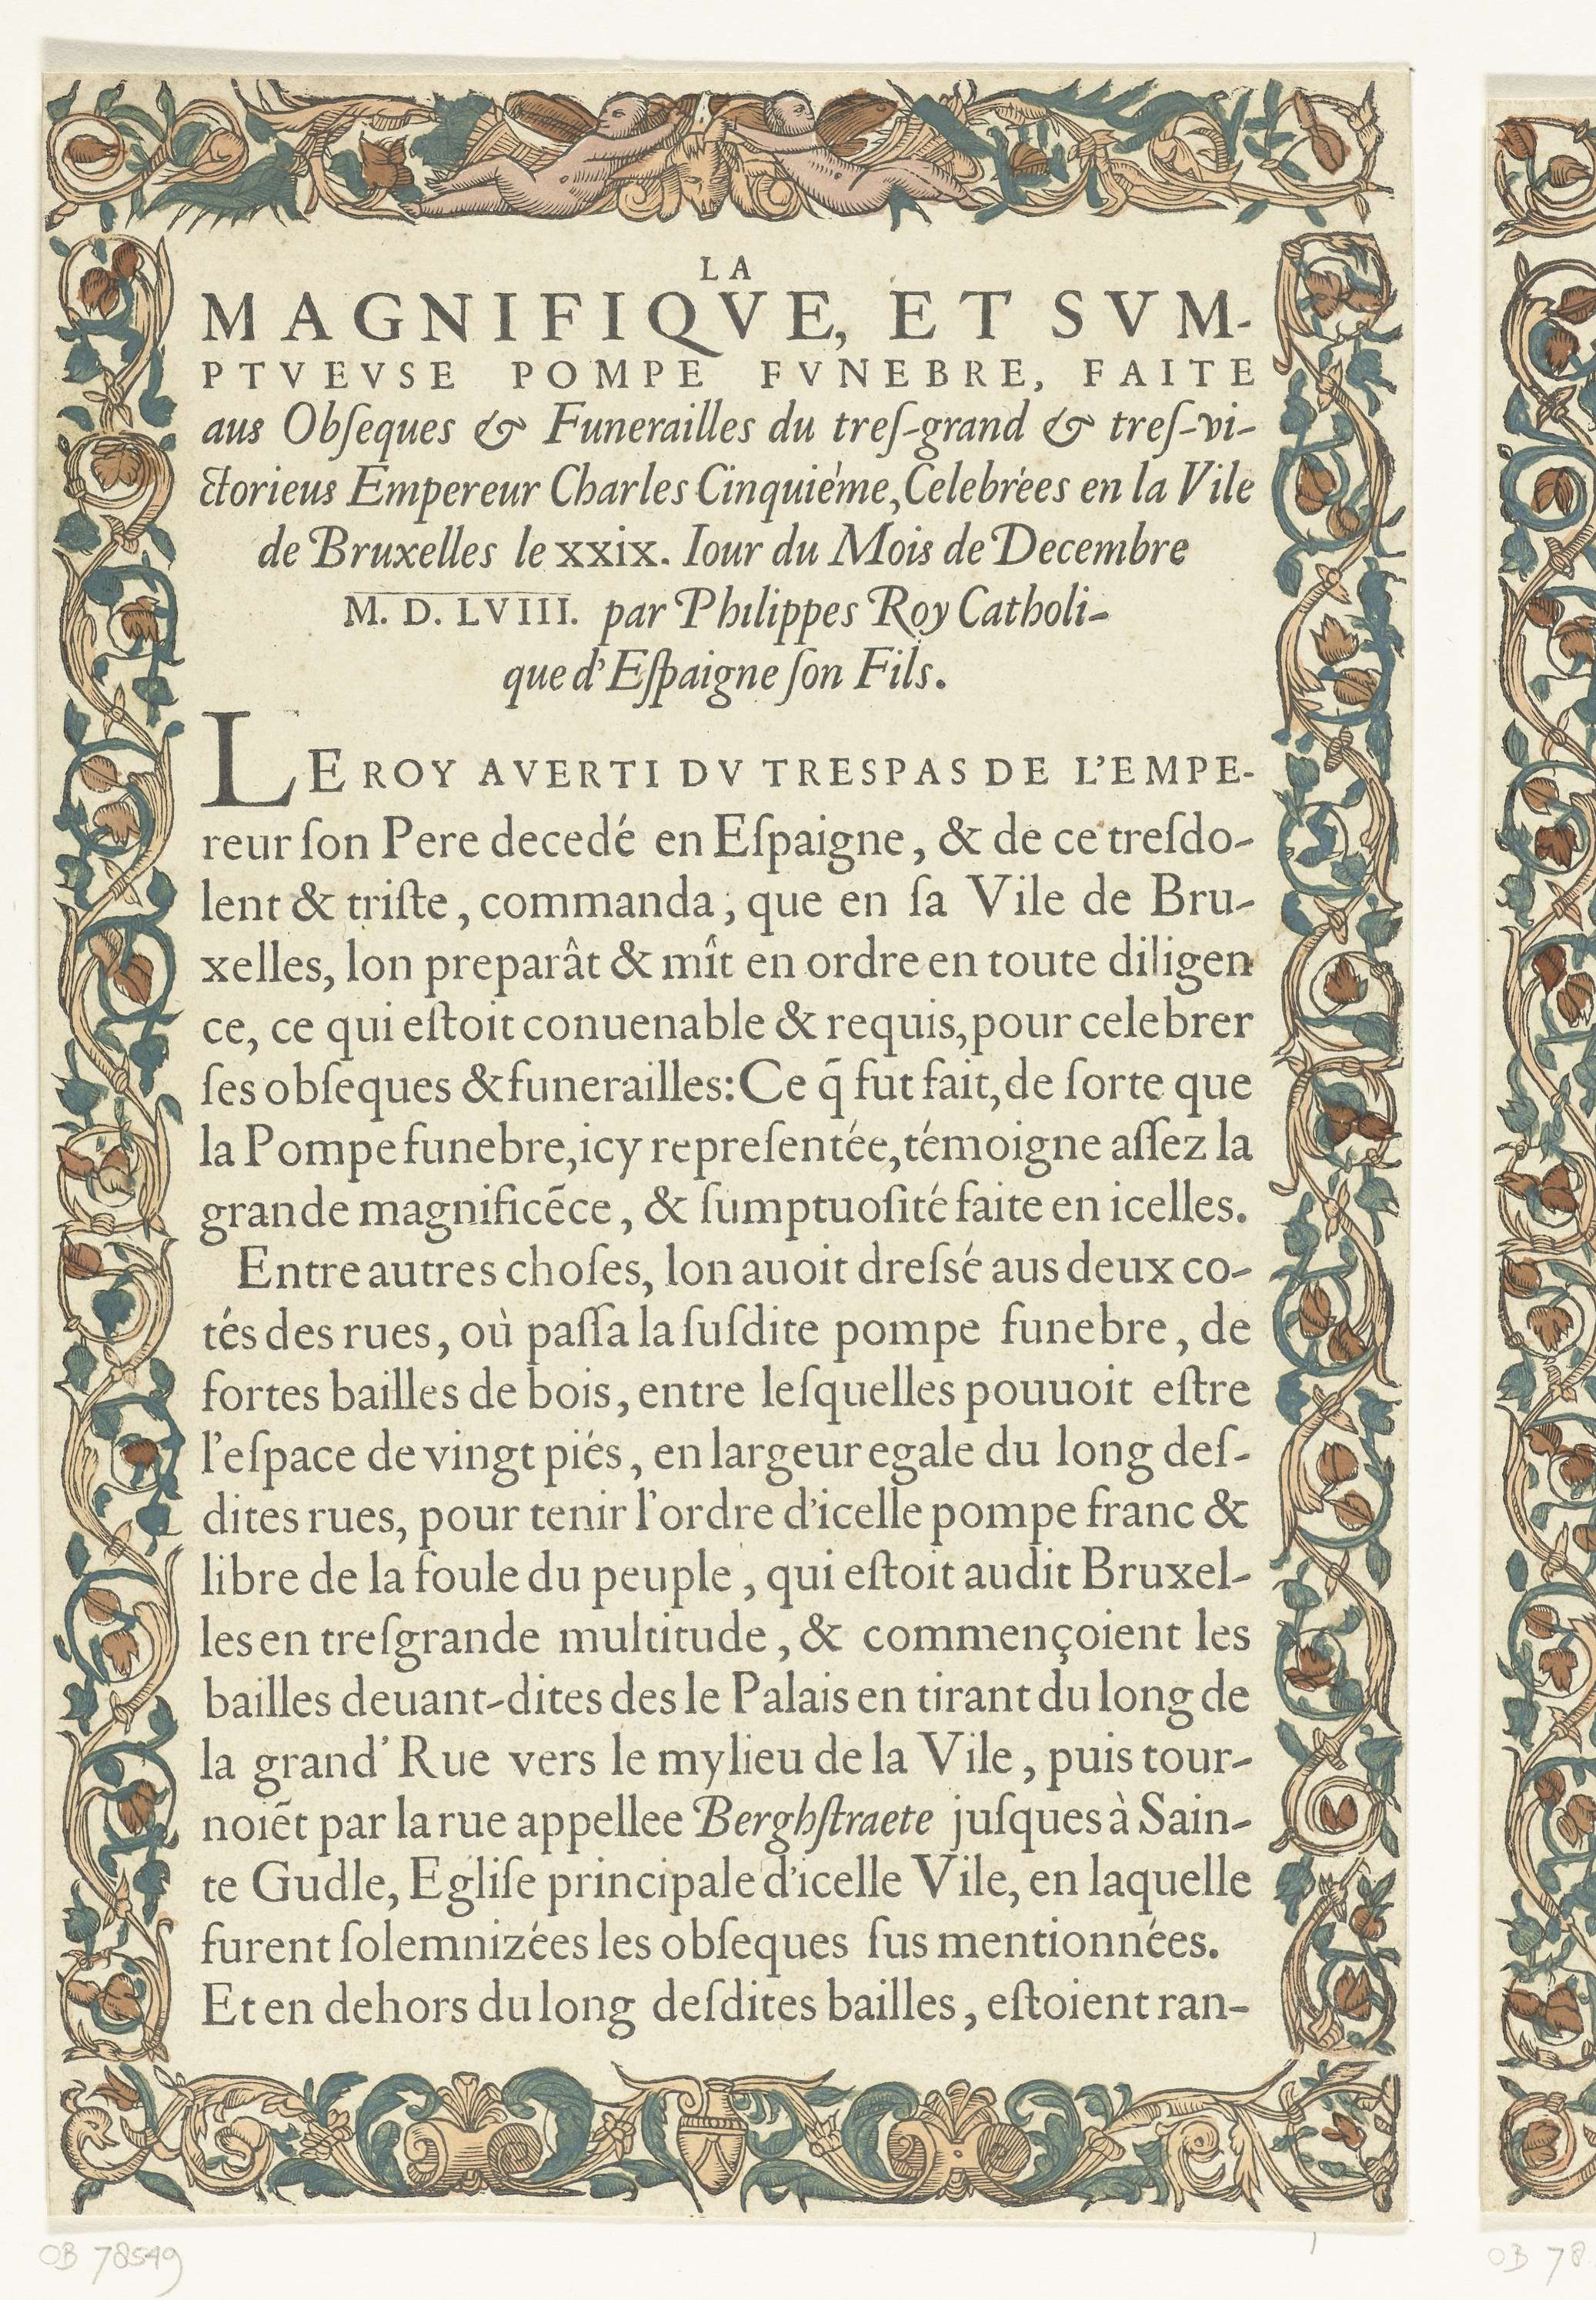 LA
MAGNIFIQVE, ET SVM-
PTVEVSE POMPE FVNEBRE, FAITE
aus Obſeques & Funerailles du treſ-grand & treſ-vi-
ctorieus Empereur Charles Cinquiéme, Celebrées en la Vile
de Bruxelles le xxix. Iour du Mois de Decembre
M. D. LVIII. par Philippes Roy Catholi-
que d'Eſpaigne ſon Fils.
LE ROY AVERTI DV TRESPAS DE L'EMPE-
reur ſon Pere decedé en Eſpaigne, & de ce treſdo-
lent & triſte, commanda, que en ſa Vile de Bru-
xelles, lon preparât & mît en ordre en toute diligen
ce, ce qui eſtoit conuenable & requis, pour celebrer
ſes obſeques & funerailles: Ce q̃ fut fait, de ſorte que
la Pompe funebre, icy repreſentée, témoigne aſſez la
grande magnificẽce, & ſumptuoſité faite en icelles.
Entre autres choſes, lon auoit dreſsé aus deux co-
tés des rues, où paſſa la ſuſdite pompe funebre, de
fortes bailles de bois, entre leſquelles pouuoit eſtre
l'eſpace de vingt piés, en largeur egale du long deſ-
dites rues, pour tenir l'ordre d'icelle pompe franc &
libre de la foule du peuple, qui eſtoit audit Bruxel-
les en treſgrande multitude, & commençoient les
bailles deuant-dites des le Palais en tirant du long de
la grand' Rue vers le mylieu de la Vile, puis tour-
noiẽt par la rue appellee Berghſtraete juſques à Sain-
te Gudle, Egliſe principale d'icelle Vile, en laquelle
furent ſolemnizées les obſeques ſus mentionnées.
Et en dehors du long deſdites bailles, eſtoient ran-
OB 78549
OB 78